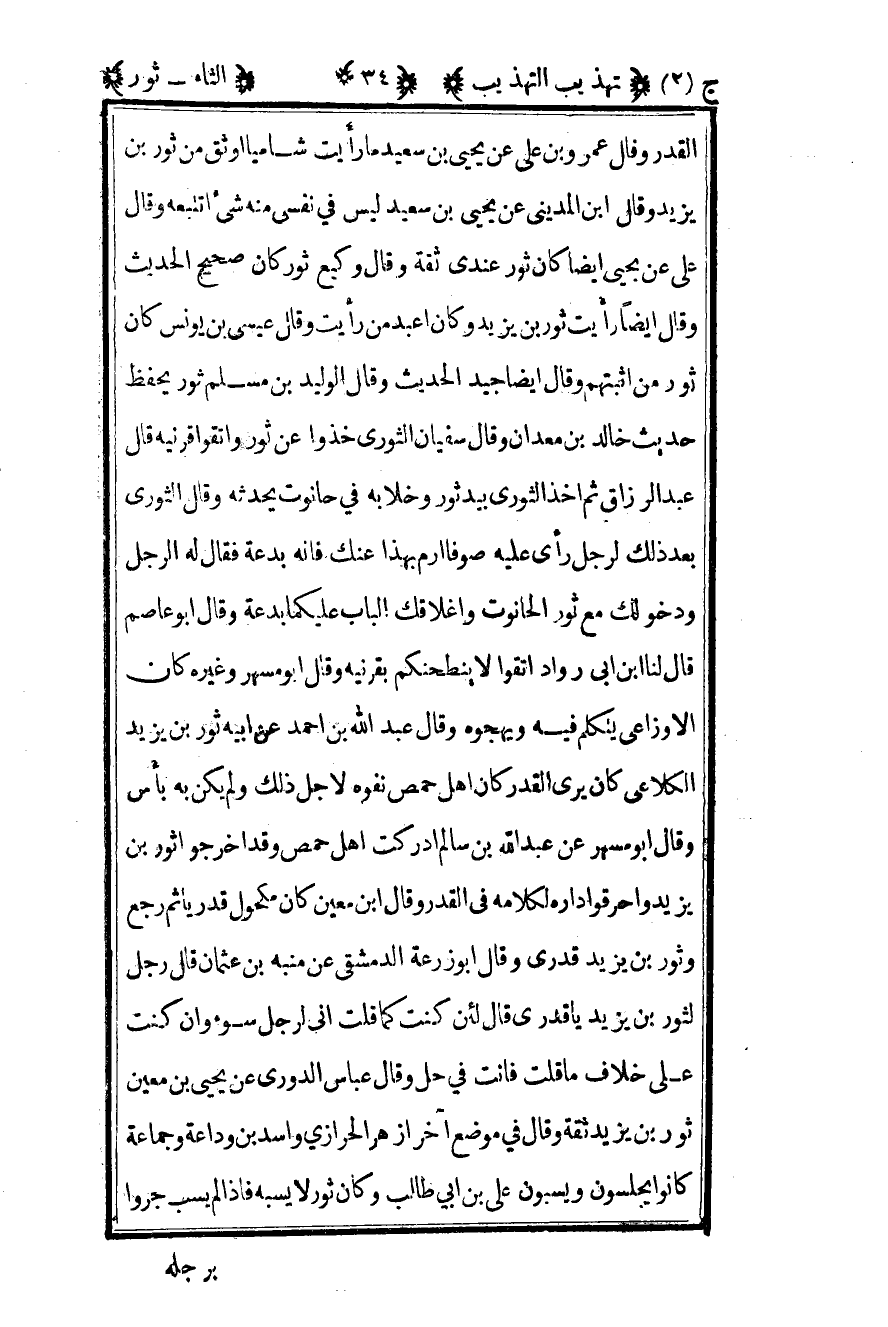 ج (٢) تهذيب التهذيب ٣٤ الثاء ــ ثور
القدر وقال عمرو بن علي عن يحيى بن سعيد ما رأيت شاميا اوثق من ثور بن
يزيد وقال ابن المديني عن يحيى بن سعيد ليس في نفسي منه شيء اتتبعه وقال
علي عن يحيى ايضا كان ثور عندى ثقة وقال وكيع ثور كان صحيح الحديث
وقال ايضاً رأيت ثور بن يزيد وكان اعبد من رأيت وقال عيسى بن يونس كان
ثور من اثبتهم وقال ايضا جيد الحديث وقال الوليد بن مسلم ثور يحفظ
حديث خالد بن معدان وقال سفيان الثورى خذوا عن ثور واتقوا قرنيه قال
عبد الرزاق ثم اخذ الثورى بيد ثور وخلا به في حانوت يحدثه وقال الثورى
بعد ذلك لرجل رأى عليه صوفا ارم بهذا عنك فانه بدعة فقال له الرجل
ودخولك مع ثور الحانوت واغلاقك الباب عليكما بدعة وقال ابو عاصم
قال لنا ابن ابى رواد اتقوا لا ينطحنكم بقرنيه وقال ابو مسهر وغيره كان
الاوزاعى يتكلم فيه ويهجوه وقال عبد الله بن احمد عن ابيه ثور بن يزيد
الكلاعى كان يرى القدر كان اهل حمص نفوه لاجل ذلك ولم يكن به بأس
وقال ابو مسهر عن عبد الله بن سالم ادركت اهل حمص وقد اخرجوا ثور بن
يزيد واحرقوا داره لكلامه فى القدر وقال ابن معين كان مكحول قدريا ثم رجع
وثور بن يزيد قدرى وقال ابو زرعة الدمشقى عن منبه بن عثمان قال رجل
لثور بن يزيد ياقدرى قال لئن كنت كما قلت انى لرجل سوء وان كنت
على خلاف ماقلت فانت في حل وقال عباس الدورى عن يحيى بن معين
ثور بن يزيد ثقة وقال في موضع آخر ازهر الحرازي واسد بن وداعة وجماعة
كانوا يجلسون ويسبون على بن ابي طالب وكان ثور لا يسبه فاذا لم يسب جروا
برجله